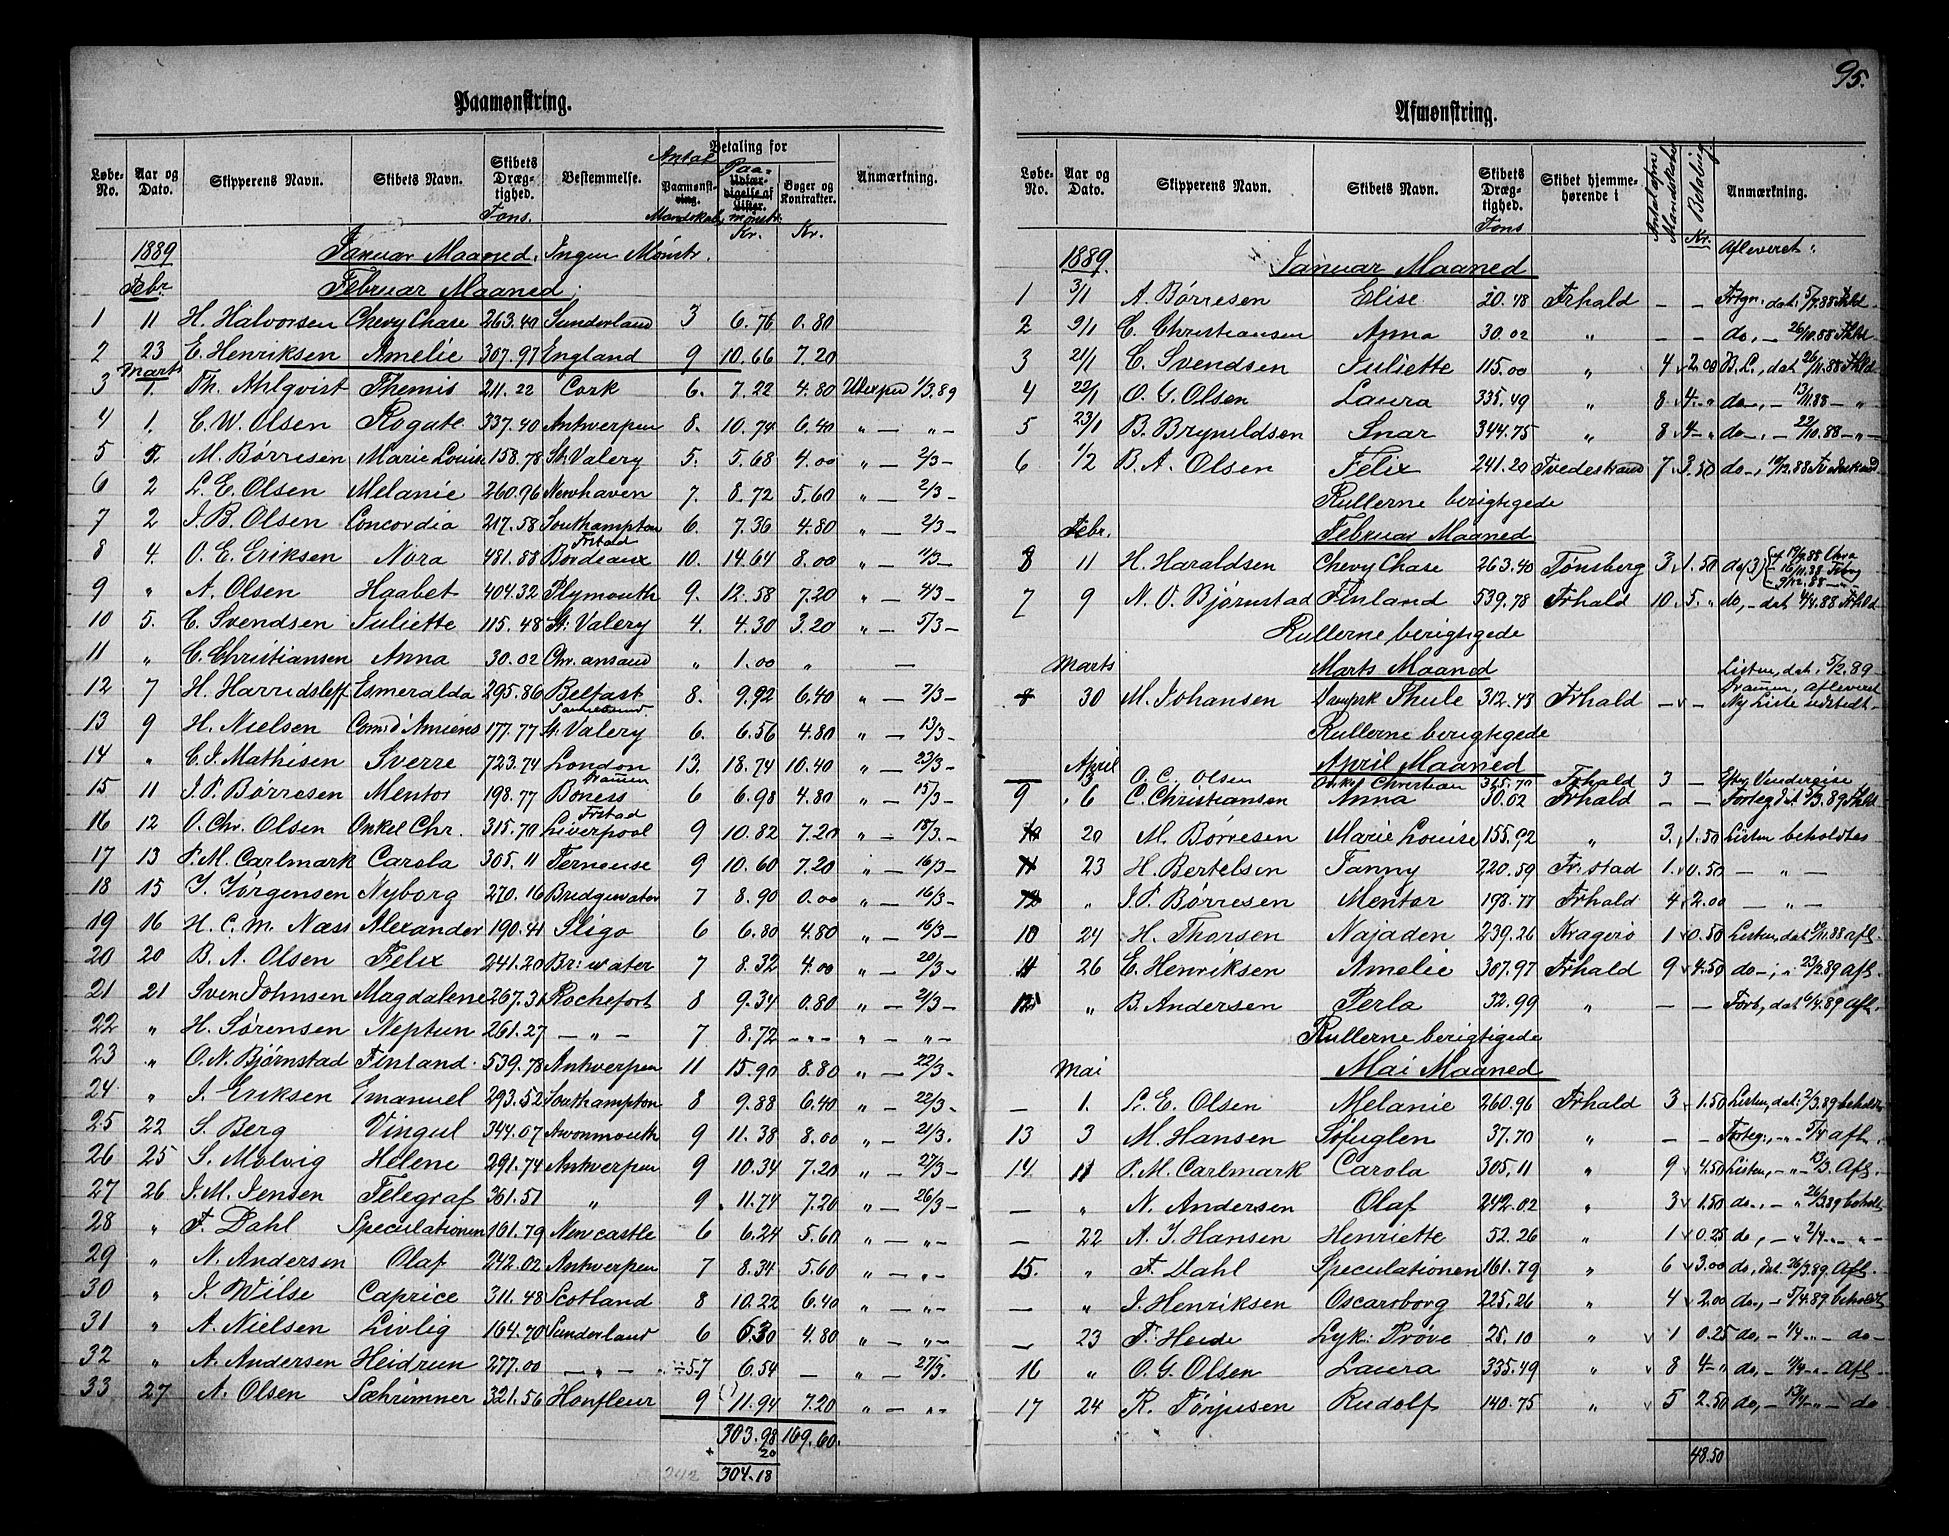 95.
Paamønstring.
Løbe-No. Aar og Dato. Skipperens Navn. Skibets Navn. Skibets Dræg-tighed. Tons. Bestemmelse. Antal Paamønst-ring. Mandskab Betaling for Paa- Udfær-digelse af Lister. mønstr. Kr. Bøger og Kontrakter. Kr. Anmærkning.
1889 Januar Maaned. Ingen Mønstr.
Febr. Februar Maaned.
1 11 H. Halvorsen Chevy Chase 263.40 Sunderland 3 6.76 0.80
2 23 E. Henriksen Amelie 307.97 England 9 10.66 7.20
Marts
3 1. Th. Ahlqvist Themis 211.22 Cork 6. 7.22 4.80 1/3.89
4 1. C. W. Olsen Rogate 337.40 Antwerpen 8. 10.74 6.40 " — " —
5 2 M. Børresen Marie Louise 158.78 St. Valery 5. 5.68 4.00 " — 2/3 —
6 2 L. E. Olsen Melanie 260.96 Newhaven 7. 8.72 5.60 " — 2/3 —
7 2 J. B. Olsen Concordia 217.58 Southampton 6. 7.36 4.80 " — 2/3 —
Frstad
8 4. O. E. Eriksen Nora 481.88 Bordeaux 10. 14.64 8.00 " —
9 " A. Olsen Haabet 404.32 Plymouth 9. 12.58 7.20 " — 4/3 —
10 5. C. Svendsen Juliette 115.48 St. Valery 4. 4.30 3.20 " — 5/3 —
11 " C. Christiansen Anna 30.02 Chr. ansand " 1.00 " —
12 7 H. Harridsleff Esmeralda 295.86 Belfast 8. 9.92 6.40 " — 7/3 —
13 9 H. Nielsen Com d'Amiens 177.77 St. Valery 6. 6.56 4.80 " — 13/3 —
14 " C. J. Mathisen Sverre 723.74 London 13. 18.74 10.40 " — 23/3 —
Drammen
15 11 J. P. Børresen Mentor 198.77 Boness 6 6.98 4.80 " — 15/3 —
Frstad
16 12 O. Chr. Olsen Onkel Chr. 315.70 Liverpool 9 10.82 7.20 " — 18/3 —
17 13 P. M. Carlmark Carola 305.11 Terneuse 9 10.60 7.20 " — 16/3 —
18 15 J. Jørgensen Nyborg 270.16 Bridgewater 7 8.90 0.00 " — 16/3 —
19 16 H. C. M. Næss Alexander 190.41 Sligo 6 6.80 4.80 " — 16/3 —
20 20 B. A. Olsen Felix 241.20 Br: water 7 8.32 4.00 " — 20/3 —
21 21 Sven Johnsen Magdalene 267.31 Rochefort 8 9.34 0.80 " — 2/3 —
22 " H. Sørensen Neptun 261.27 — " — 7 8.72 — " — " — " —
23 " O. N. Bjørnstad Finland 539.78 Antwerpen 11 15.90 8.80 " — 22/3 —
24 " J. Eriksen Emanuel 293.52 Southampton 8 9.88 6.40 " — 22/3 —
25 22 S. Berg Vingul 344.07 Avonmouth 9 11.38 8.00 " — 21/3.
26 25 S. Molvig Helene 291.74 Antwerpen 9 10.34 7.20 " — 27/3 —
27 26 J. M. Jensen Telegraf 361.51 " 9 11.74 7.20 " — 26/3 —
28 " F. Dahl Speculationen 161.79 Newcastle 6 6.24 5.60 " — " —
29 " N. Andersen Olaf 242.02 Antwerpen 7 8.34 5.60 " — " —
30 " J. Wilse Caprice 311.48 Scotland 8 10.22 6.40 " — " —
31 " A. Nielsen Livlig 164.70 Sunderland 6 6.30 4.80 " — " —
32 " A. Andersen Heidrun 277.00 — " — ÷ 5.7 6.54 — " — 27/3.
33 27 A. Olsen Sæhrimner 321.56 Honfleur 9 11.94 7.20 " — " —
303.98 169.60.
+ 20
242 304.18
Afmønstring.
Løbe-No. Aar og Dato. Skipperens Navn. Skibets Navn. Skibets Dræg-tighed. Tons Skibet hjemme-hørende i Antal afm Mandskaber Betaling Kr. Anmærkning.
1889. Januar Maaned Afleveret:
1 3/1 A. Børresen Elise 20.48 Frhald — — Fortgn. dat. 5/7.88 Fhld
2 9/1 C. Christiansen Anna 30.02 " — — do, — 26/10.88 Fhld
3 21/1 C. Svendsen Juliette 115.00 " 4 2.00 B. L., dat. 26/11.88 Fhld
4 22/1 O. G. Olsen Laura 335.49 " 8 4.— " do —, — 13/11.88 — "
5 23/1 B. Brynildsen Snar 344.75 " 8 4.— " do —, — 22/10.88 — " —
6 1/2 B. A. Olsen Felix 241.20 Tvedestrand 7 3.50 do —, 19/12.88 Tvedestrand
Rullerne berigtigede
Febr. Februar Maaned
8 11 H. Haraldsen Chevy Chase 263.40 Tønsberg 3 1.50 do (3)
7 9 N. O. Bjørnstad Finland 539.78 Frhald 10 5. " do, — dat 4/4.88 Frhald
Rullerne berigtigede
Marts Marts Maaned Listen, dat. 5/2.89
Drammen, afleveret
8 30 M. Johansen Thule 312.43 Frhald — — Ny Liste udstedt —
Rullerne berigtigede
April April Maaned
— 3 O. C. Olsen Onkel Christian 315.70 Frhald 3 —
9 6 C. Christiansen Anna 30.02 Frhald — — Forteg dat 5/3.89 Fhld
10 20 M. Børresen Marie Louise 155.92 " 3 1.50 Listen beholdtes
11 23 H. Bertelsen Fanny 220.59 Fr: stad 1 0.50 — " —
12 " J. P. Børresen Mentor 198.77 Frhald 4 2.00 — " —
10 24 H. Thorsen Najaden 239.26 Kragerø 1 0.50 Listen, dat 9/11.88 afl.
11 26 E. Henriksen Amelie 307.97 Frhald 9 4.50 do —, " 23/2.89 Afl.
12 " B. Andersen Perla 32.99 " — — Fort, dat 6/4.89 Afl.
Rullerne berigtigede
Mai Mai Maaned
— 1. L. E. Olsen Melanie 260.96 Frhald 3 1.50 Listen, dat. 2/3.89 beholdt
13 3 M. Hansen Søfuglen 37.70 " — — Forteg:, — " — 5/4 afl.
14. 11 P. M. Carlmark Carola 305.11 " 9 4.50 Listen, — " — 13/3. Afl.
— " N. Andersen Olaf 242.02 " 3 1.50 do —, — " 26/3.89 beholdt
— 22 A. J. Hansen Henriette 52.26 " 1 0.25 do, — " 2/4 — " —
15. " F. Dahl Speculationen 161.79 " 6 3.00 do, dat. 26/3.89. Afl.
— " J. Henriksen Oscarsborg 225.26 " 4 2.00 do, — 5/4.89 beholdt
— 23 F. Heide Lyk: Prøve 25.10 " 1 0.25 do, — 1/4 — " — do —
16 " O. G. Olsen Laura 335.49 " 8 4 — " do, — 4/4 — " Afl.
17 24 K. Torjusen Rudolf 140.75 " 5 2.50 do, — 13/4 — " — do
48.50